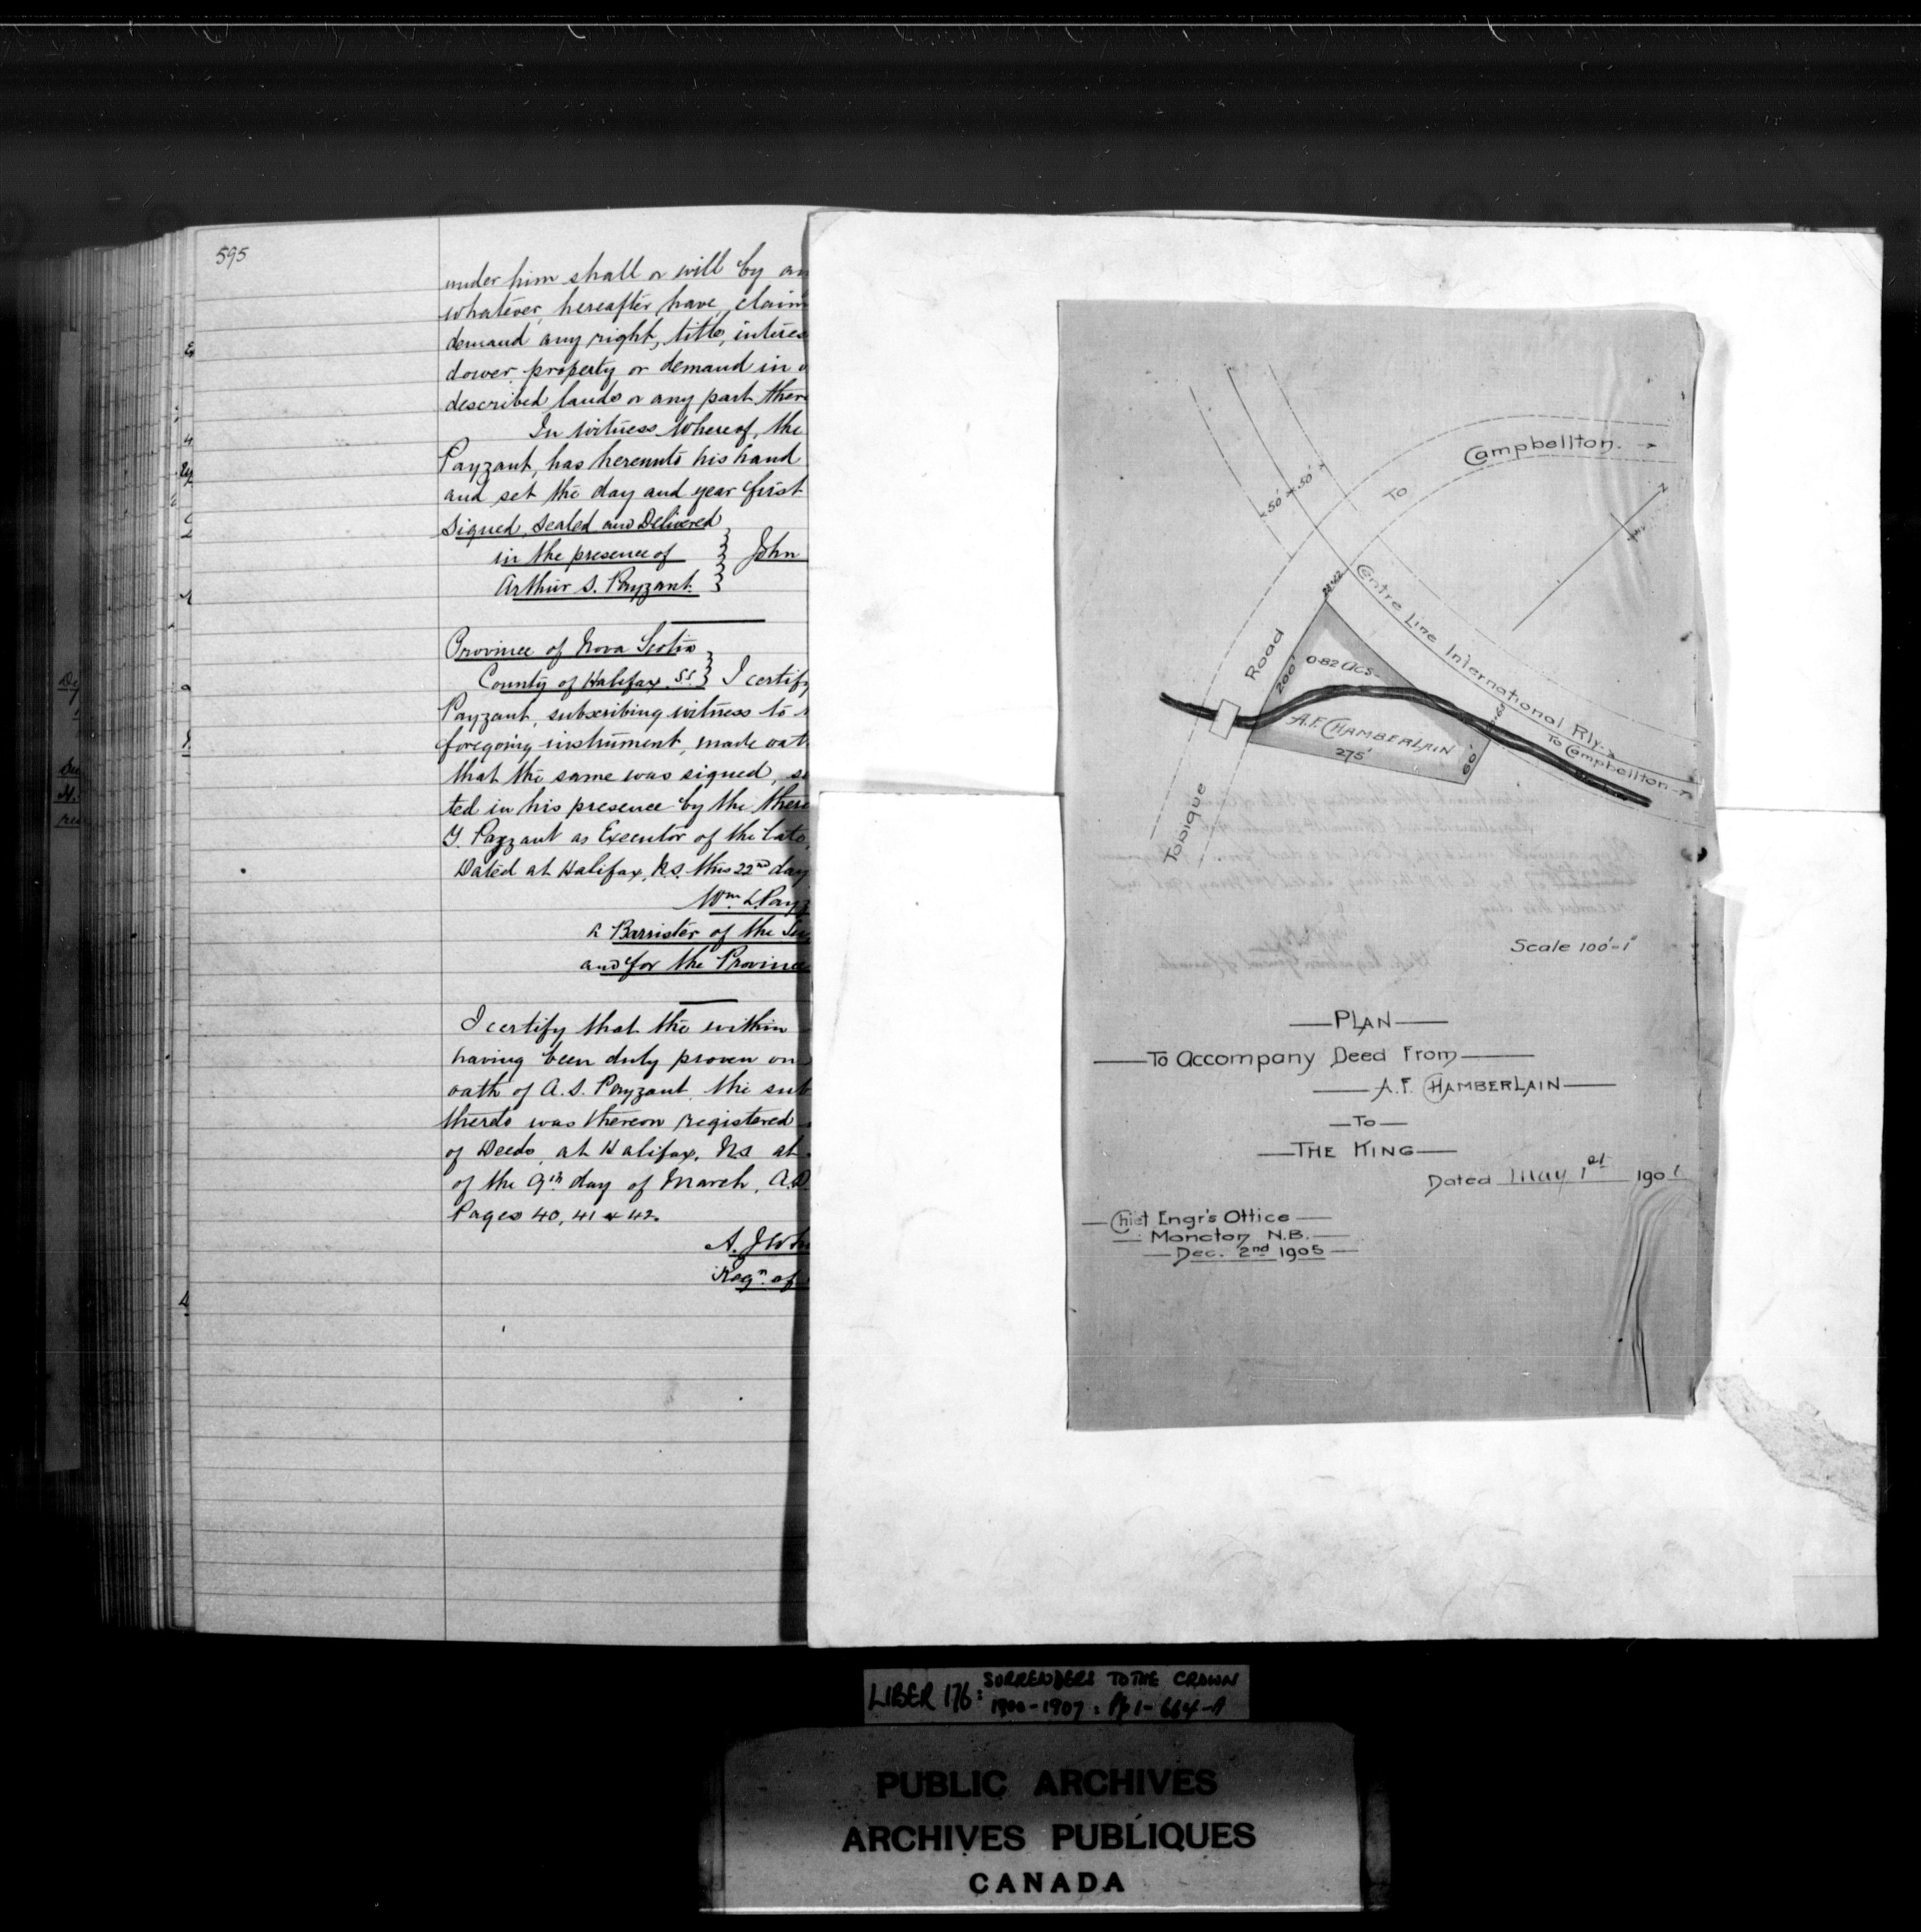 595
under him shall or will by an
whatever, hereafter, have, claim
demand any right, title, interes
dower property or demand in
described lands or any part ther
In witness whereof, the
Payzant, has hereunto his hand
and set the day and year first
Signed, Sealed and Delivered
in the presence of } John
Arthur S. Payzant. }
Province of Nova Scotia
County of Halifax. S.S. } I certify
Payzant, subscribing witness to
foregoing instrument, made oat
that the same was signed, s
ted in his presence by the there
Y. Payzant as Executor of the late
Dated at Halifax, N.S. this 22nd day
Wm. L. Payz
A Barrister of the Su
and for the Province
I certify that the within
having been duly proven on
oath of A. S. Payzant, the sub
thereto was thereon registered
of Deeds, at Halifax, N.S. at
of the 9th day of March, A.D.
Pages 40, 41 & 42.
A. J. Wh
Regr. of
Campbellton.
To
50' 50'
Centre Line International Rly.
To Campbellton
Road
200'
0.82 Acs.
A.F. Chamberlain
275'
60'
Tobique
Scale 100'-1"
Plan
To Accompany Deed From
A.F. Chamberlain
To
The King
Dated May 1st 190
Chief Engr's Office
Moncton N.B.
Dec. 2nd 1905
LIBER 176: SURRENDERS TO THE CROWN
1900-1907: Pp 1-664-A
PUBLIC ARCHIVES
ARCHIVES PUBLIQUES
CANADA